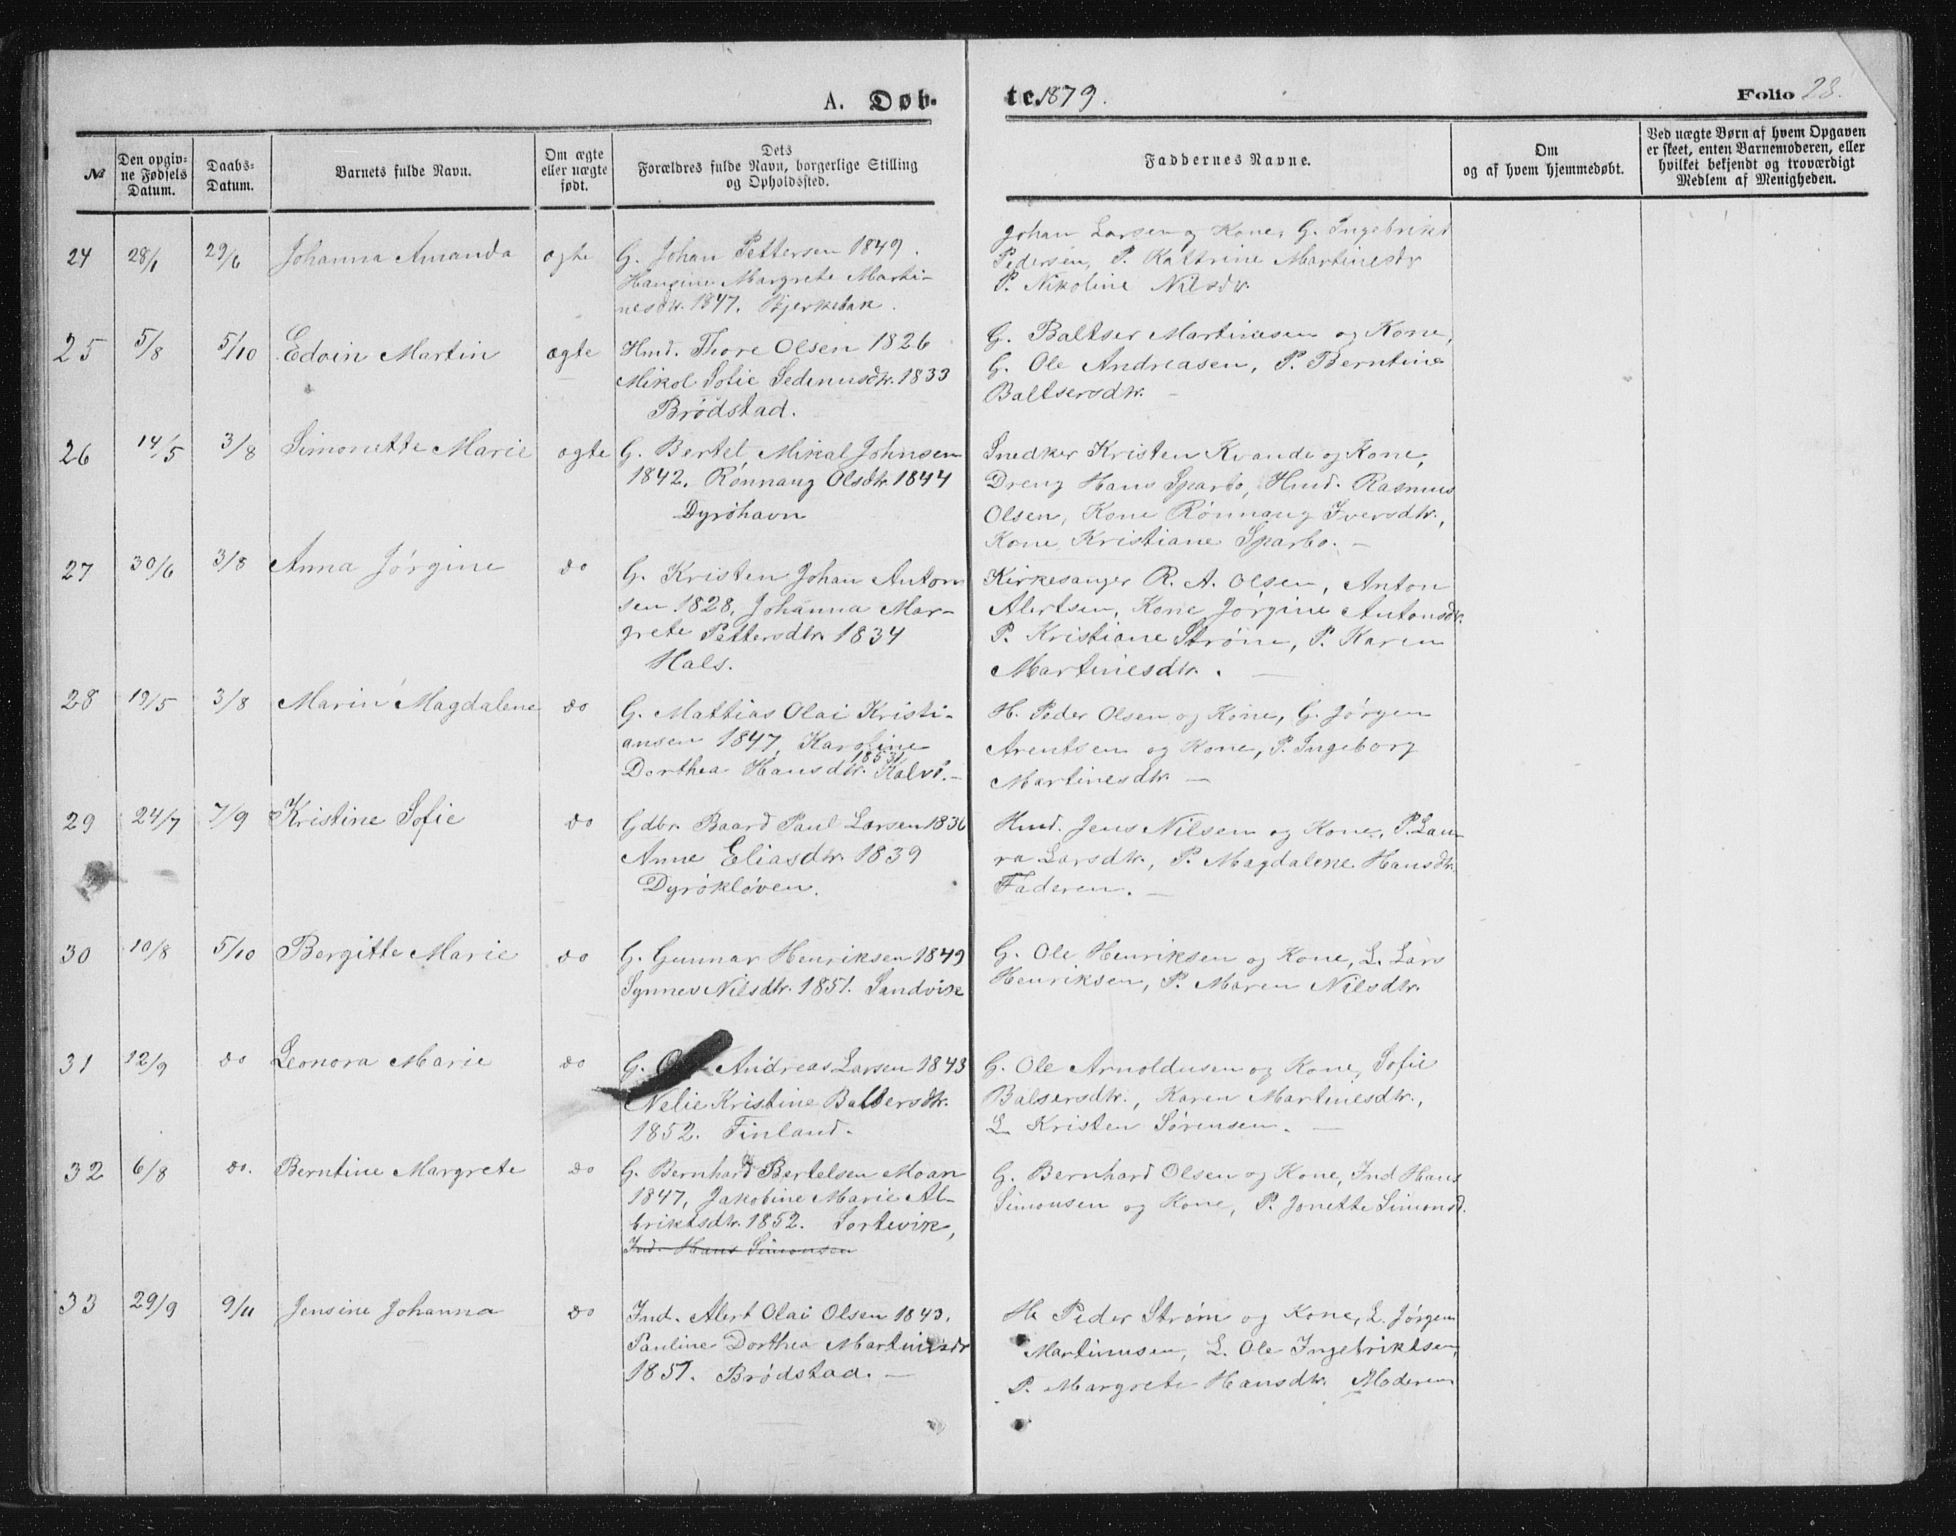 A. Døb-
te. 1879.
Folio 28.
No
Den opgiv-
ne Fødsels
Datum.
Daabs-
Datum.
Barnets fulde Navn.
Om ægte
eller uægte
født.
Dets
Forældres fulde Navn, borgerlige Stilling
og Opholdssted.
Faddernes Navne.
Om
og af hvem hjemmedøbt.
Ved uægte Børn af hvem Opgaven
er skeet, enten Barnemoderen, eller
hvilket bekjendt og troværdigt
Medlem af Menigheden.
24 28/1 29/6 Johanna Amanda ægte
G. Johan Pettersen 1849.
Hansine Margrete Marti-
nesdtr. 1847. Bjerkebak.
Johan Larsen og Kone, G. Ingebrikt
Pedersen, P. Kattrine Martinesdtr
P. Nikoline Nilsdtr.
25 5/8 5/10 Edvin Martin ægte
Hmd. Thore Olsen 1826
Mikol Sofie Sedeniusdtr. 1833
Brødstad.
G. Baltser Martinesen og Kone,
G. Ole Andreasen, P. Berntine
Baltsersdtr. —
26 14/5 3/8 Simonette Marie ægte
G. Bertel Mikal Johnsen
1842. Rønnaug Olsdtr. 1844
Dyröhavn
Snedker Kristen Kvande og Kone,
Dreng Hans Sparbo, Hmd. Rasmus
Olsen, Kone Rønnaug Iversdtr.,
Kone Kristiane Sparbo. —
27 30/6 3/8 Anna Jørgine do
G. Kristen Johan Anton
sen 1828, Johanna Mar-
grete Pettersdtr. 1834
Hals.
Kirkesanger R. A. Olsen, Anton
Alertsen, Kone Jørgine Antonsdtr.
P. Kristiane Strøm, P. Karen
Martinesdtr. —
28 19/5 3/8 Marin Magdalene do
G. Mattias Olai Kristi-
ansen 1847, Karoline
Dorthea Hansdtr. 1853 Kalvö. —
H. Peder Olsen og Kone, G. Jørgen
Arentsen og Kone, P. Ingeborg
Martinesdtr. —
29 24/7 7/9 Kristine Sofie do
Gdbr. Baard Paul Larsen 1836
Anne Eliasdtr. 1839
Dyrøkløven.
Hmd. Jens Nilsen og Kone, P. Lau-
ra Larsdtr., P. Magdalene Hansdtr.
Faderen. —
30 10/8 5/10 Bergitte Marie do
G. Gunnar Henriksen 1849
Synnev Nilsdtr. 1851. Sandvik
G. Ole Henriksen og Kone, L. Lars
Henriksen, P. Maren Nilsdtr.
31 12/9 do Leonora Marie do
G. Andreas Larsen 1843
Nelie Kristine Baltsersdtr.
1852. Finland.
G. Ole Arnoldusen og Kone, Sofie
Balsersdtr., Karen Martinesdtr.,
L. Kristen Sørensen. —
32 6/8 do. Berntine Margrete do
G. Bernhard Bertelsen Moan
1847, Jakobine Marie Al-
briktsdtr. 1852. Sortevik,
Ind. Hans Simonsen
G. Bernhard Olsen og Kone, Ind Hans
Simonsen og Kone, P. Jonette Simonsd.
33 29/9 9/11 Jensine Johanna do
Ind. Alert Olai Olsen 1843.
Pauline Dorthea Martinesdtr
1851. Brødstad. —
H. Peder Strøm og Kone, L. Jørgen
Martinusen, L. Ole Ingebriktsen,
P. Margrete Hansdtr. Moderen